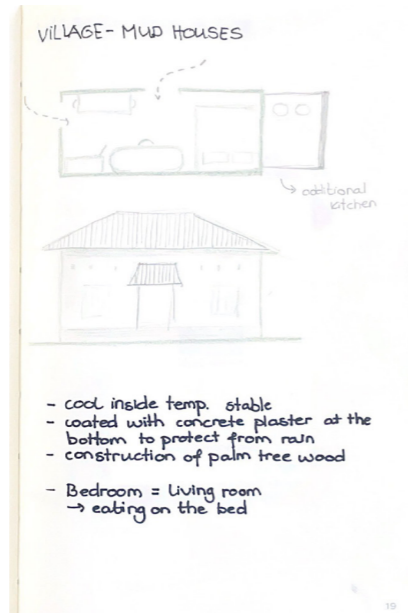 VILLAGE - MUD HOUSES
additional
kitchen
- cool inside temp. stable
- coated with concrete plaster at the
bottom to protect from rain
- construction of palm tree wood
- Bedroom = Living room
→ eating on the bed
19